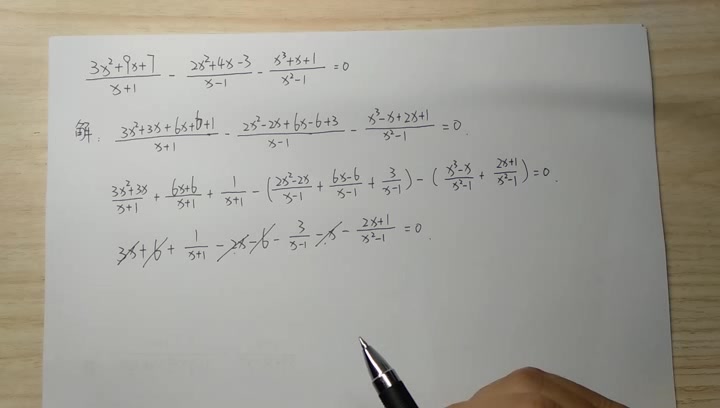 (3x²+9x+7)/(x+1) - (2x²+4x-3)/(x-1) - (x³+x+1)/(x²-1) = 0
解: (3x²+3x+6x+6+1)/(x+1) - (2x²-2x+6x-6+3)/(x-1) - (x³-x+2x+1)/(x²-1) = 0.
(3x²+3x)/(x+1) + (6x+6)/(x+1) + 1/(x+1) - ((2x²-2x)/(x-1) + (6x-6)/(x-1) + 3/(x-1)) - ((x³-x)/(x²-1) + (2x+1)/(x²-1)) = 0.
3x+6+1/(x+1) - 2x - 6 - 3/(x-1) - x - (2x+1)/(x²-1) = 0.